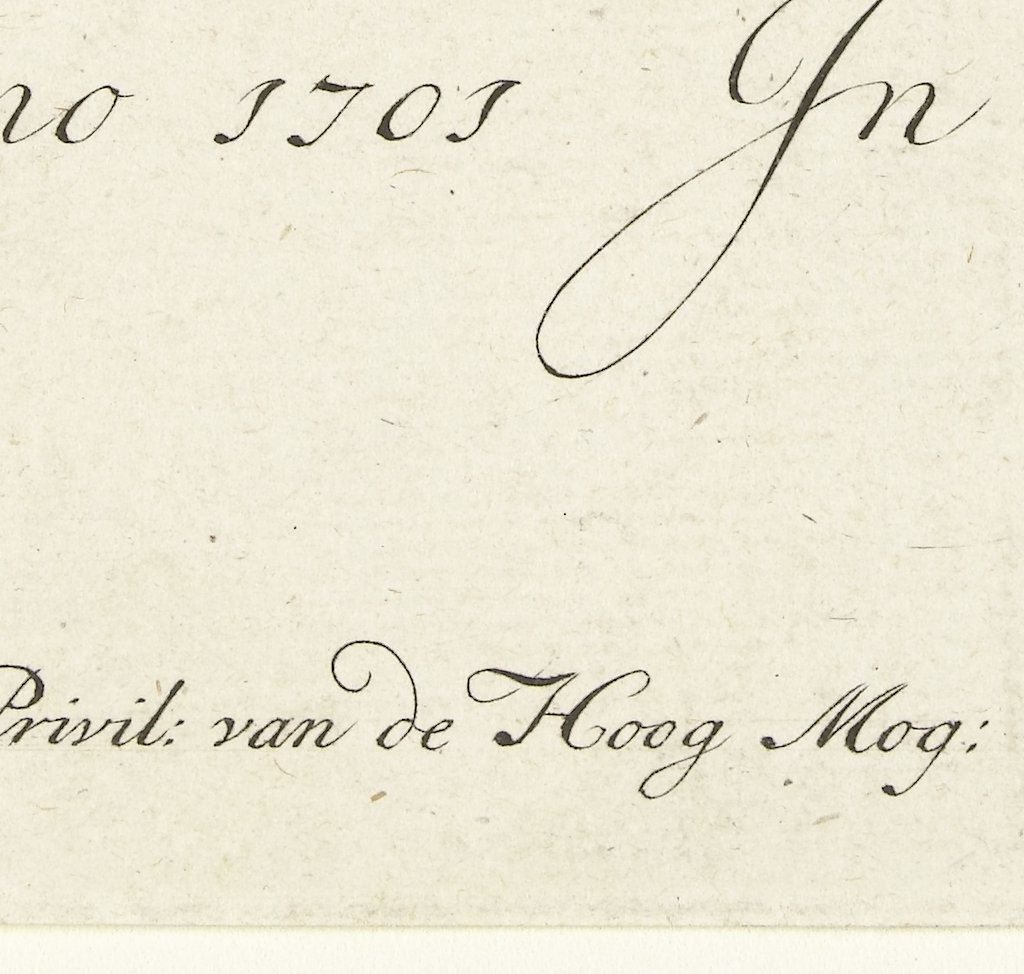 no 1701 In
Privil: van de Hoog Mog: